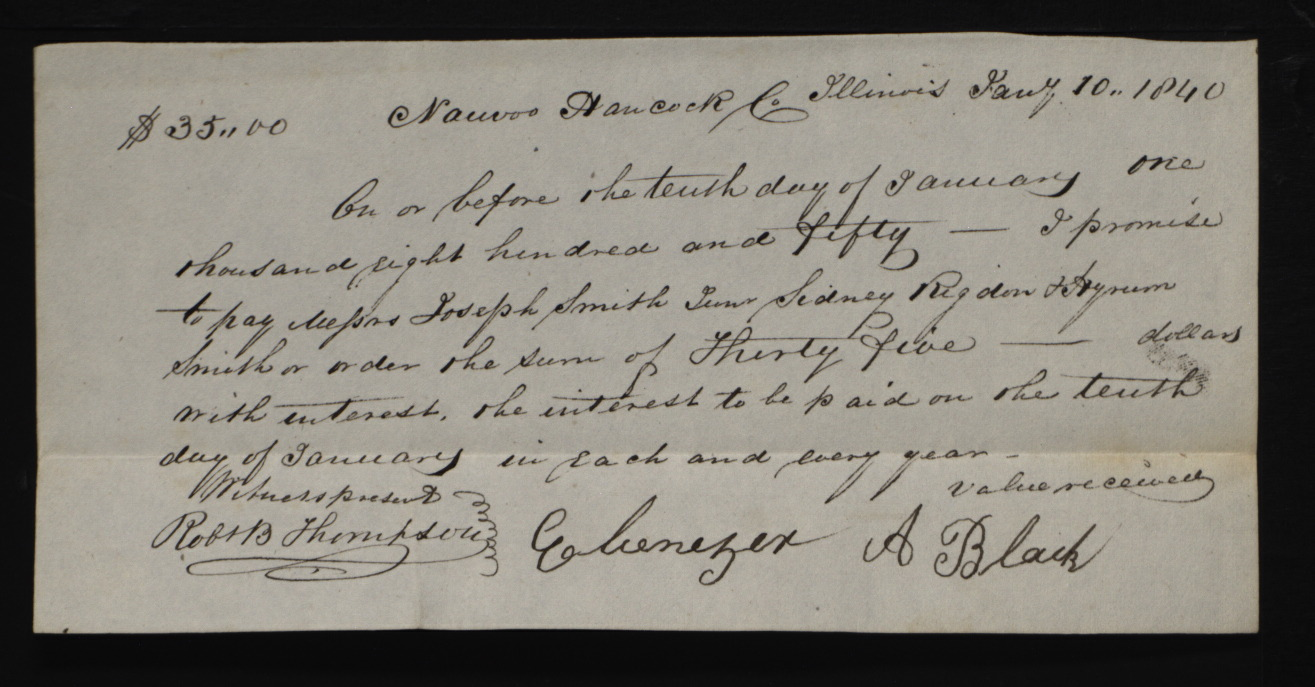 $35,,00 Nauvoo Hancock Co Illinois Jany 10,, 1840
On or before the tenth day of January one
thousand eight hundred and fifty — I promise
to pay Messrs Joseph Smith Junr Sidney Rigdon & Hyrum
Smith or order the sum of Thirty five — dollars
with interest, the interest to be paid on the tenth
day of January in each and every year -
value received
Witness present
Robt B Thompson
Ebenezer A Black